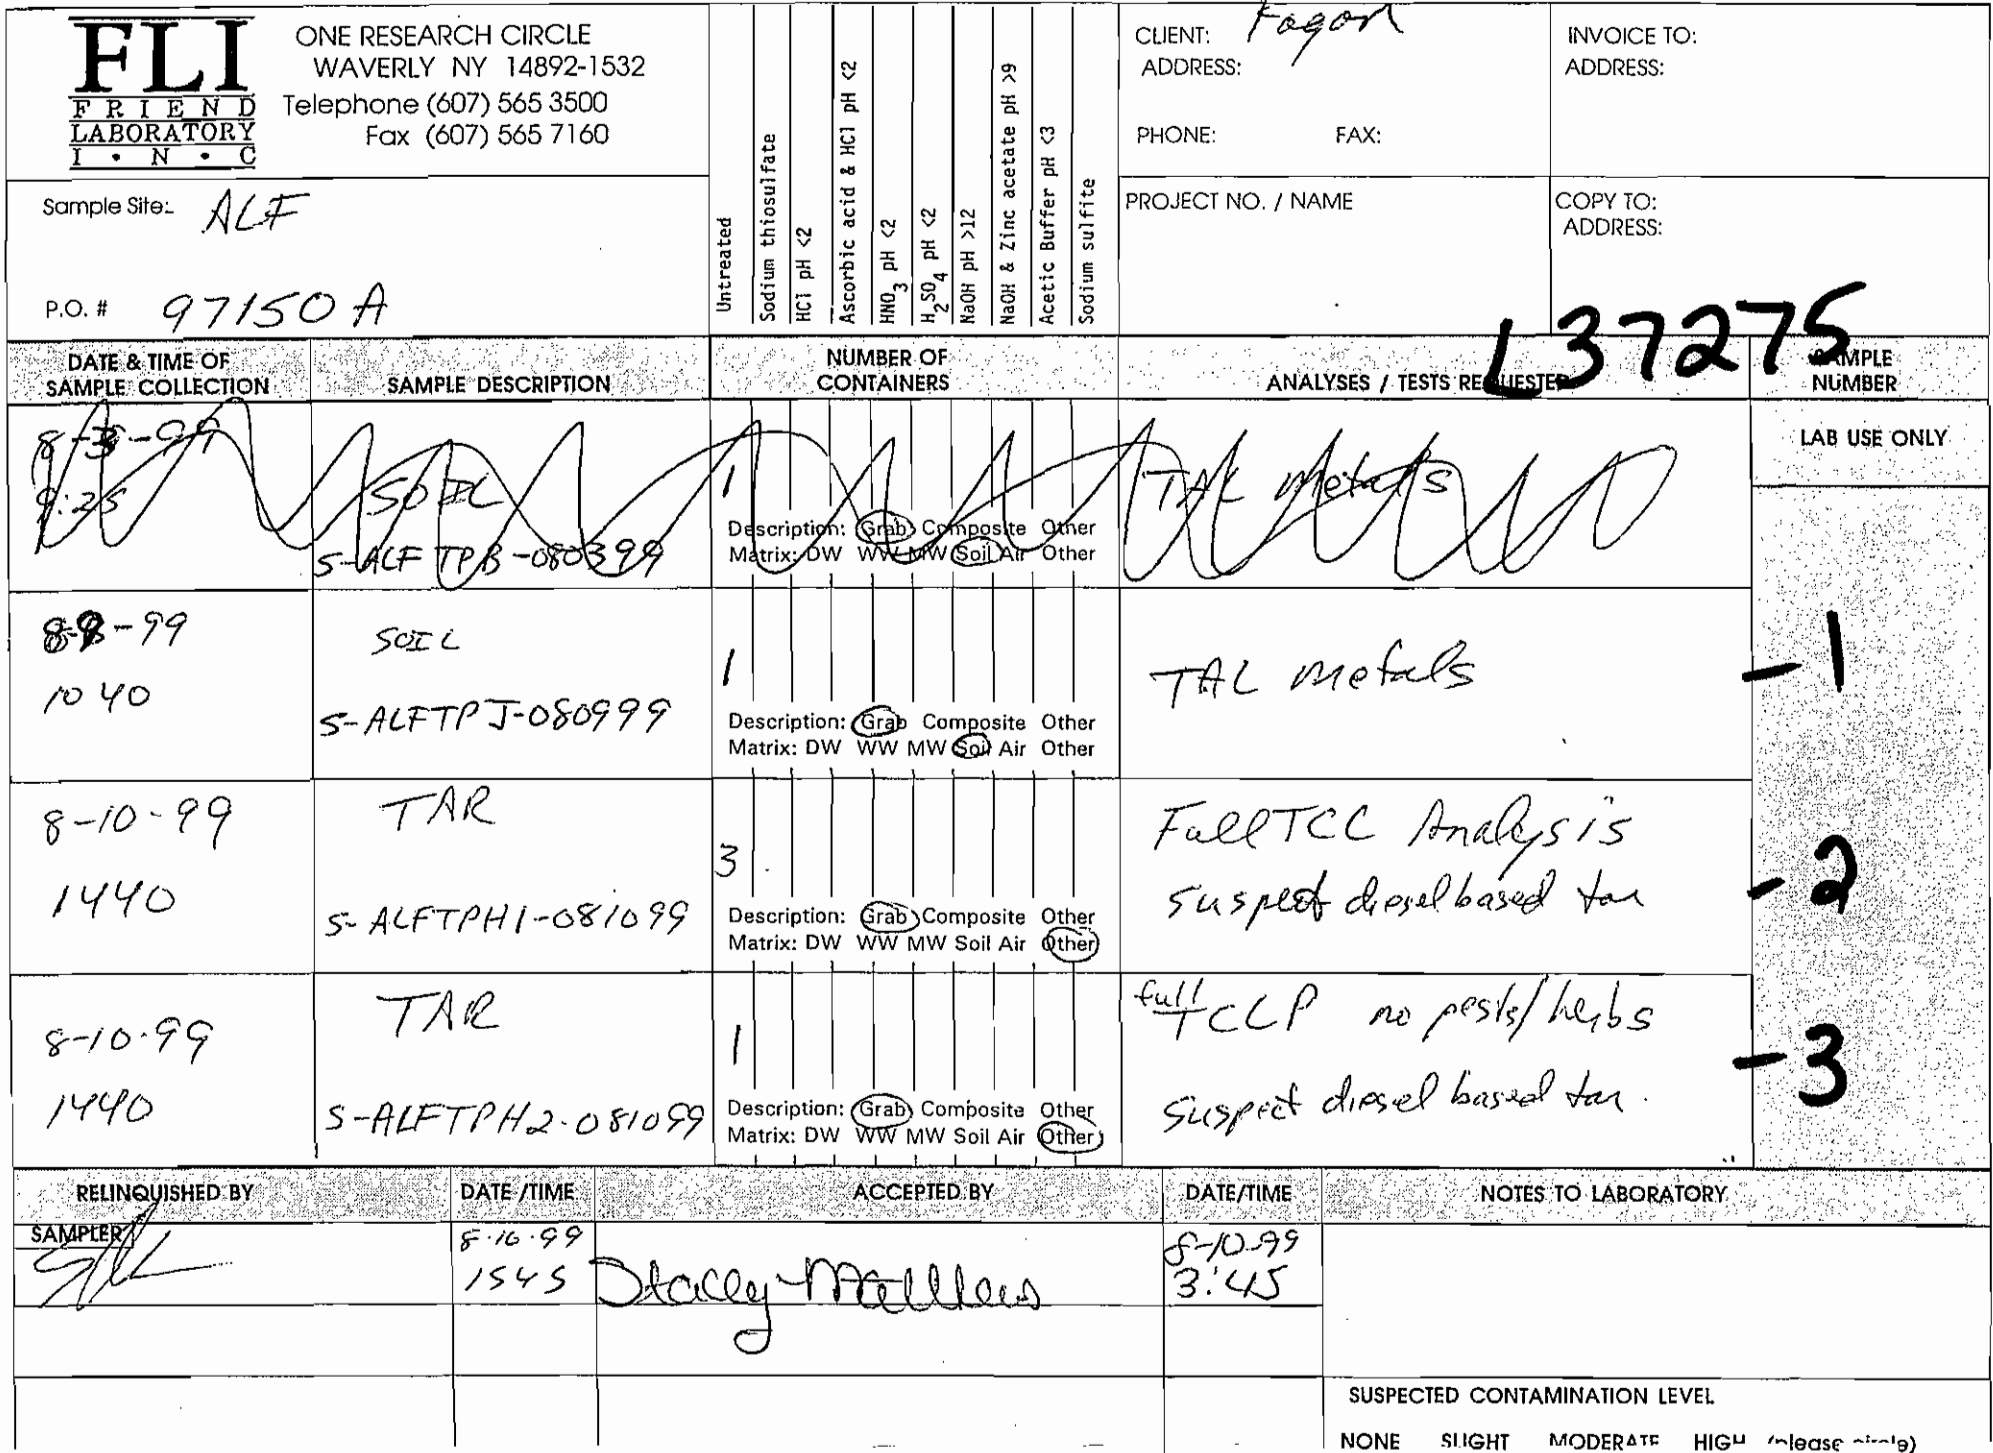 FLI
FRIEND
LABORATORY
I • N • C
ONE RESEARCH CIRCLE
WAVERLY NY 14892-1532
Telephone (607) 565 3500
Fax (607) 565 7160
Sample Site: ALF
P.O. # 97150 A
Untreated
Sodium thiosulfate
HCl pH <2
Ascorbic acid & HCl pH <2
HNO3 pH <2
H2SO4 pH <2
NaOH pH >12
NaOH & Zinc acetate pH >9
Acetic Buffer pH <3
Sodium sulfite
CLIENT: Fagon
ADDRESS:
PHONE: FAX:
INVOICE TO:
ADDRESS:
PROJECT NO. / NAME
COPY TO:
ADDRESS:
L37275
DATE & TIME OF
SAMPLE COLLECTION
SAMPLE DESCRIPTION
NUMBER OF
CONTAINERS
ANALYSES / TESTS REQUESTED
SAMPLE
NUMBER
LAB USE ONLY
8-3-99
9:25
SOIL
S-ALFTPB-080399
1
Description: Grab Composite Other
Matrix: DW WW MW Soil Air Other
TAL Metals
8-9-99
1040
SOIL
S-ALFTPJ-080999
1
Description: Grab Composite Other
Matrix: DW WW MW Soil Air Other
TAL metals
-1
8-10-99
1440
TAR
S-ALFTPH1-081099
3
Description: Grab Composite Other
Matrix: DW WW MW Soil Air Other
Full TCC Analysis
suspect diesel based tar
-2
8-10-99
1440
TAR
S-ALFTPH2-081099
1
Description: Grab Composite Other
Matrix: DW WW MW Soil Air Other
full TCLP no pests/herbs
Suspect diesel based tar.
-3
RELINQUISHED BY
DATE /TIME
ACCEPTED BY
DATE/TIME
NOTES TO LABORATORY
SAMPLER
8-10-99
1545
Stacey
8-10-99
3:45
SUSPECTED CONTAMINATION LEVEL
NONE SLIGHT MODERATE HIGH (please circle)